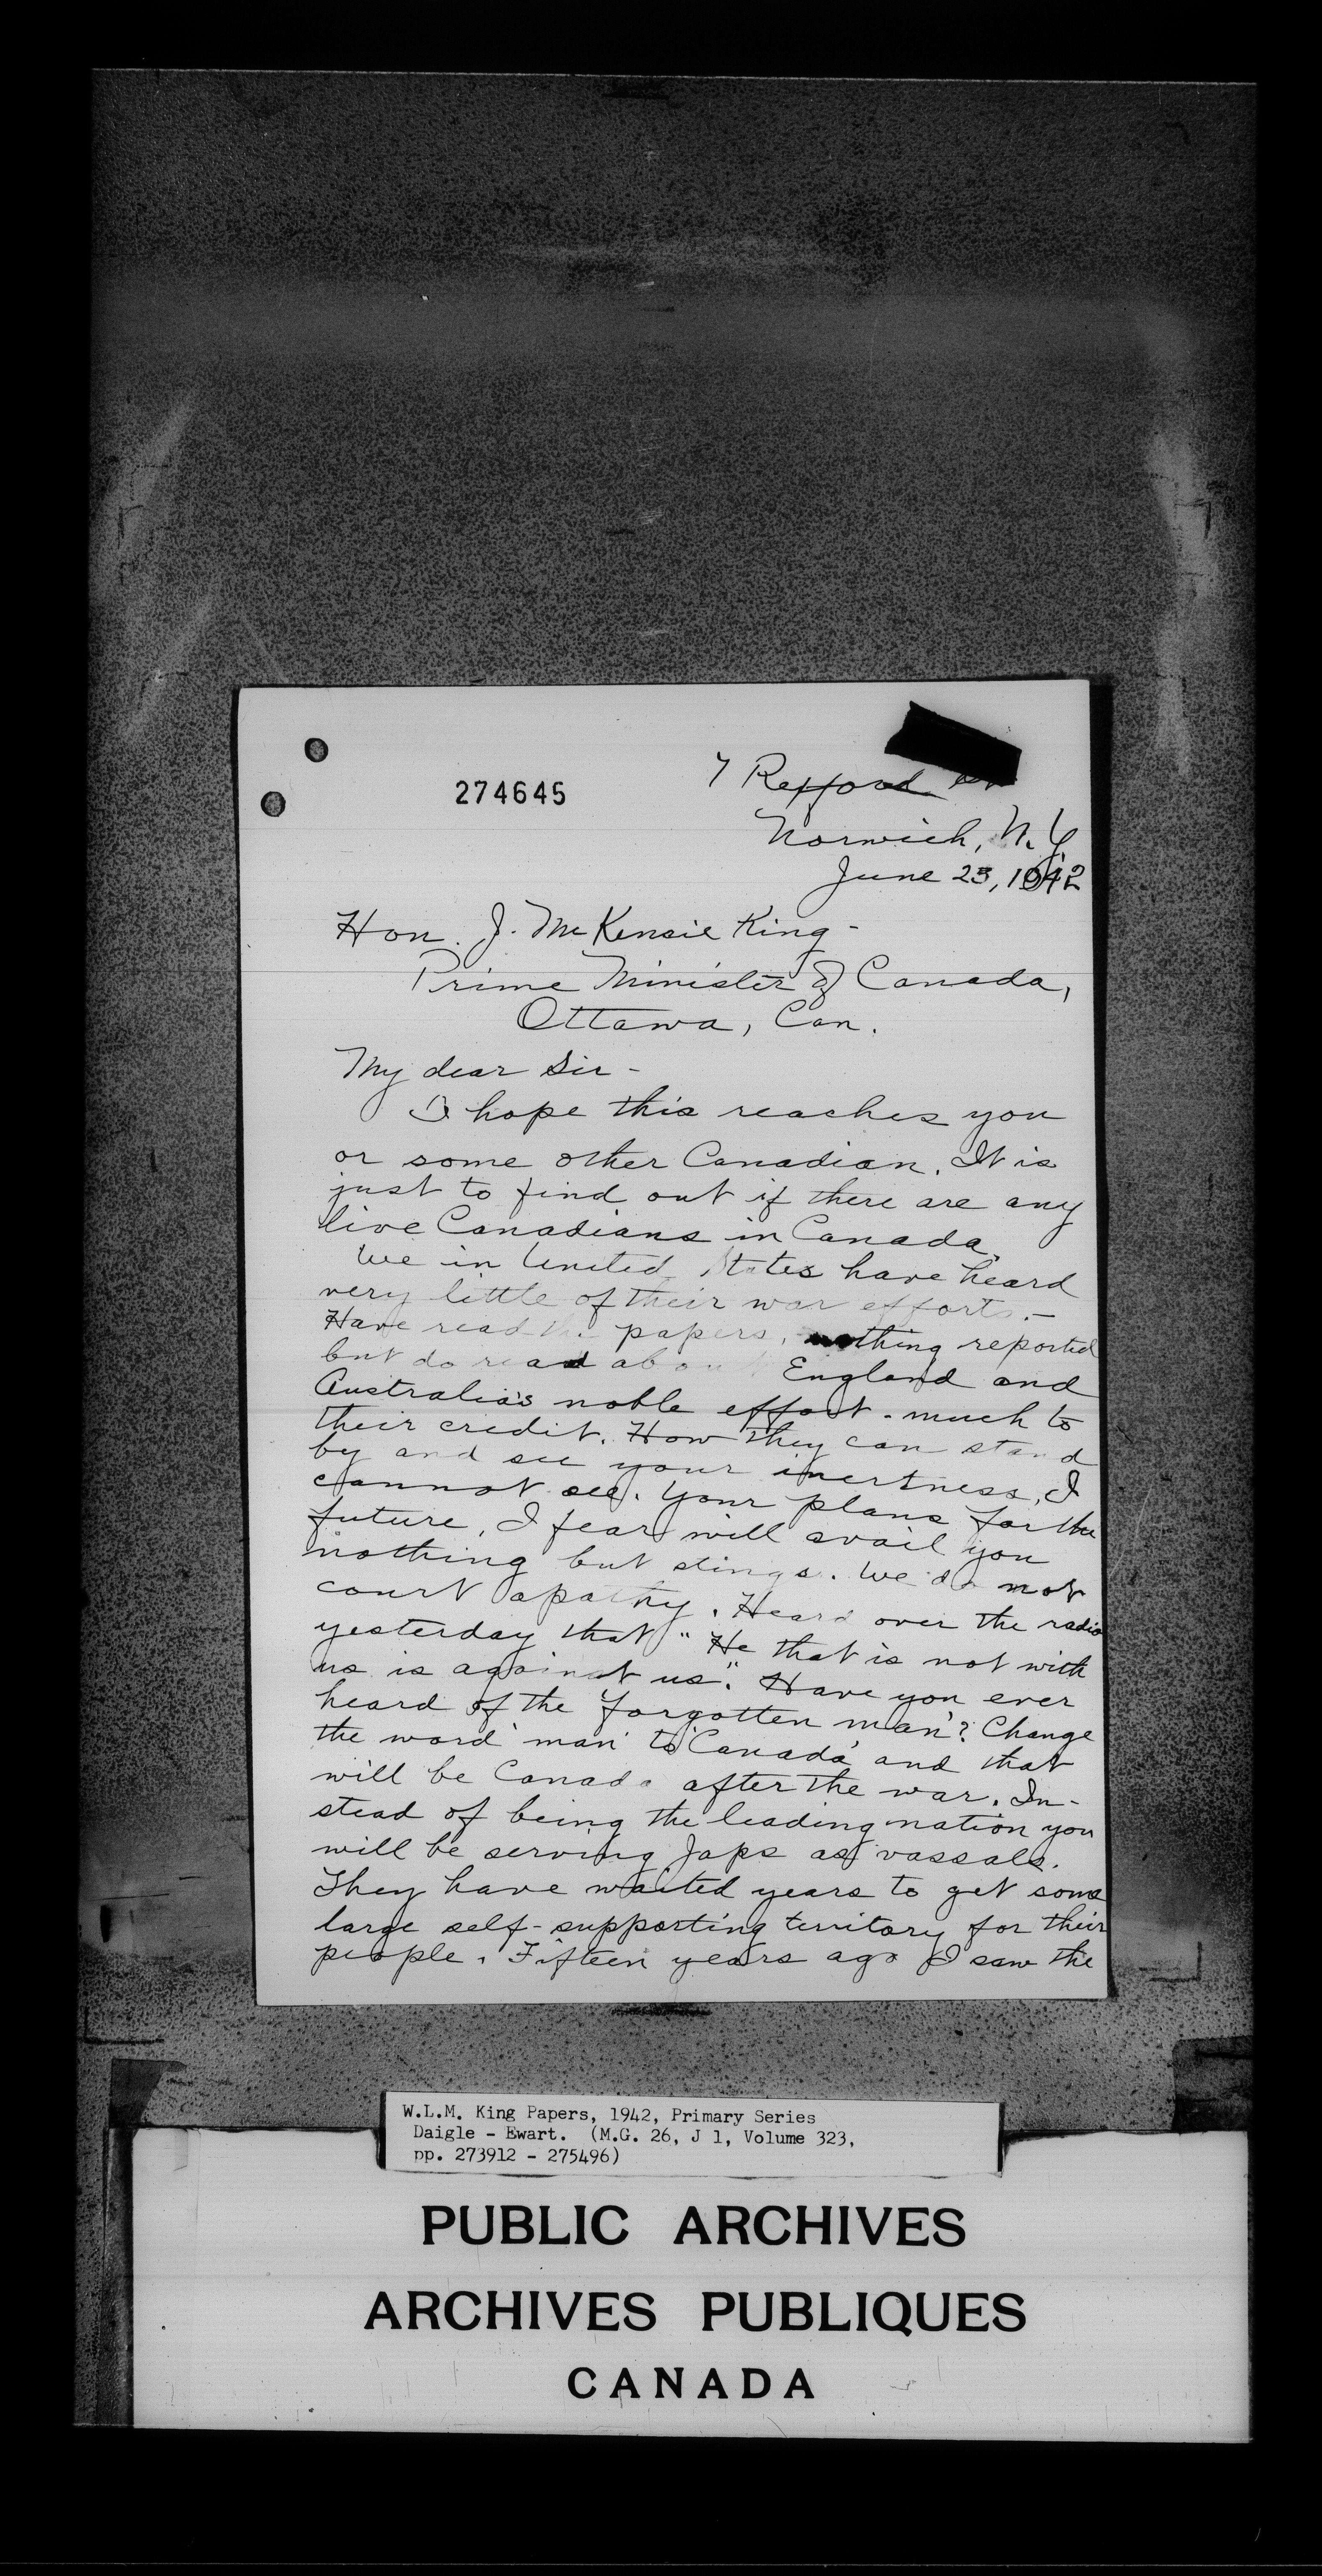 274645
7 Rexford
Norwich, N.Y.
June 23, 1942
Hon. J. McKensie King -
Prime Minister of Canada,
Ottawa, Can.
My dear Sir -
I hope this reaches you
or some other Canadian. It is
just to find out if there are any
live Canadians in Canada.
We in United States have heard
very little of their war efforts. -
Have read the papers, nothing reported
but do read about England and
Australia's noble effort - much to
their credit. How they can stand
by and see your inertness, I
cannot see. Your plans for the
future, I fear will avail you
nothing but stings. We do not
court apathy. Heard over the radio
yesterday that "He that is not with
us is against us". Have you ever
heard of the 'forgotten man'? Change
the word 'man' to 'Canada' and that
will be Canada after the war. In-
stead of being the leading nation you
will be serving Japs as vassals.
They have waited years to get some
large self-supporting territory for their
people. Fifteen years ago I saw the
W.L.M. King Papers, 1942, Primary Series
Daigle - Ewart. (M.G. 26, J 1, Volume 323,
pp. 273912 - 275496)
PUBLIC ARCHIVES
ARCHIVES PUBLIQUES
CANADA